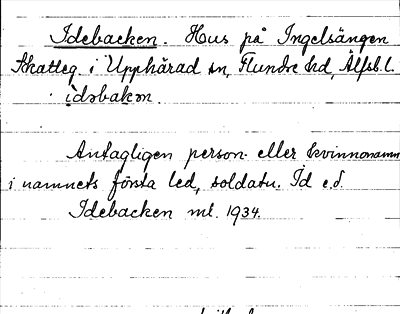 Idebacken. Hus på Ingelsängen
Skatteg i Upphärad sn, Flundre hd, Älfsb. l.
idəbakən.
Antagligen person- eller kvinnonamn
i namnets första led, soldatn. Id e.d.
Idebacken mt. 1934.